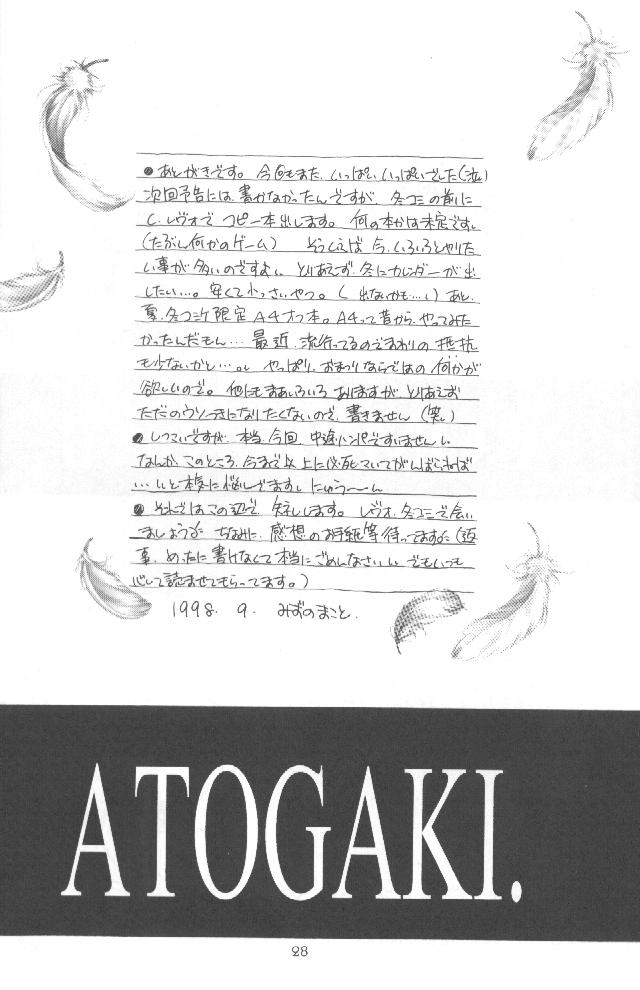 ●あとがきです。今回もまた、いっぱいいっぱいでした(泣)
次回予告には、書かなかったんですが、冬コミの前に
C.レヴォで コピー本出します。何の本かは未定です。
(たぶん何かのゲーム) そういえば 今、いろいろとやりた
い事が多いのですよ。とりあえず、冬にカレンダーが出
したい…。安くて小っさいやつ。( 出ないかも… )あと、
夏、冬コミケ限定A4オフ本。A4って昔から、やってみた
かったんだもん… 最近、流行ってるのでまわりの 抵抗
も少ないかと…。 やっぱり、おまつりならではの 何かが
欲しいので。他にもまあいろいろ ありますが、とりあえず
ただのウソつきになりたくないので、書きません (笑)
●しつこいですが、本当、今回、中途ハンパですいません
なんか、このところ、今まで以上に必死こいてがんばらねば
…いと本気に悩んでます。にゅう〜〜ん
●それではこの辺で、失礼します。レヴォ、冬コミで会い
ましょう ちなみに、感想のお手紙等待ってます (返
事、めったに書けなくて本当にごめんなさい でもいつも
心して読ませてもらってます。)
1998. 9. みずのまこと.
ATOGAKI.
28